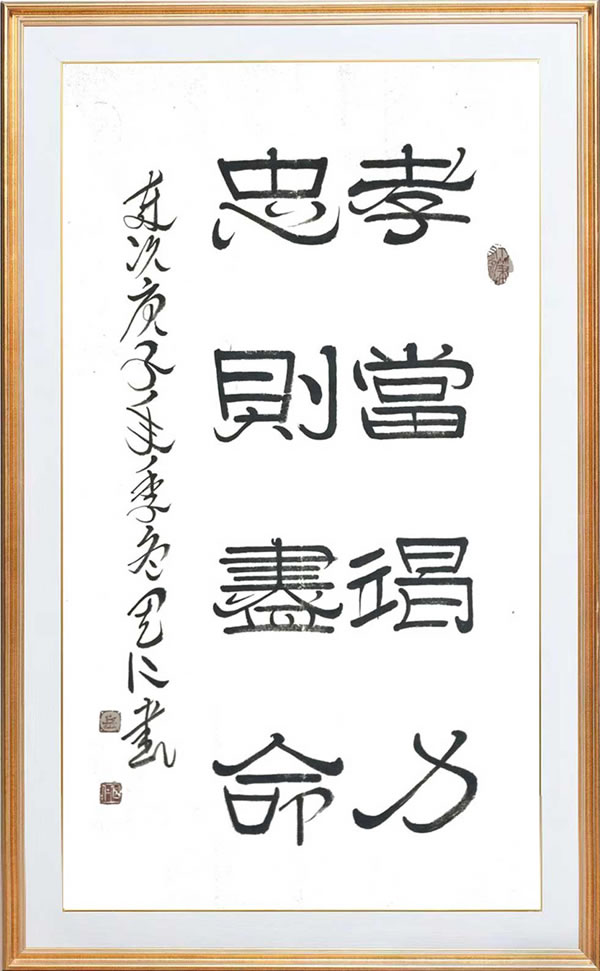 孝當竭力
忠則盡命
歲次庚子年季冬仁書